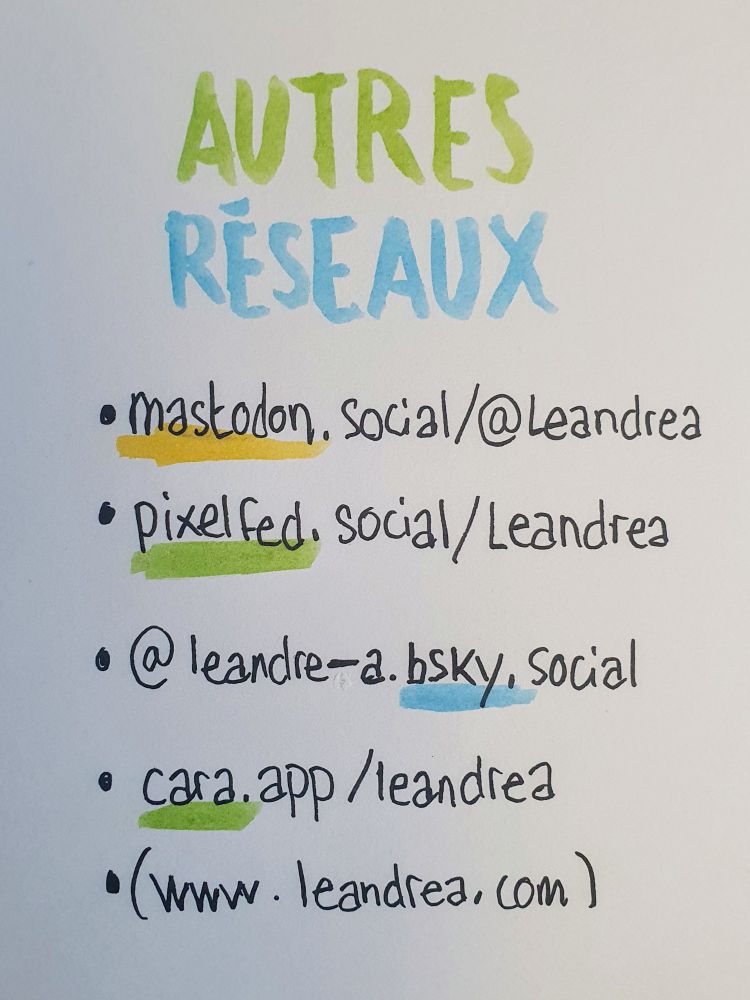 AUTRES
RÉSEAUX
• mastodon.social/@Leandrea
• pixelfed.social/Leandrea
• @leandre-a.bsky.social
• cara.app/leandrea
• (www.leandrea.com)